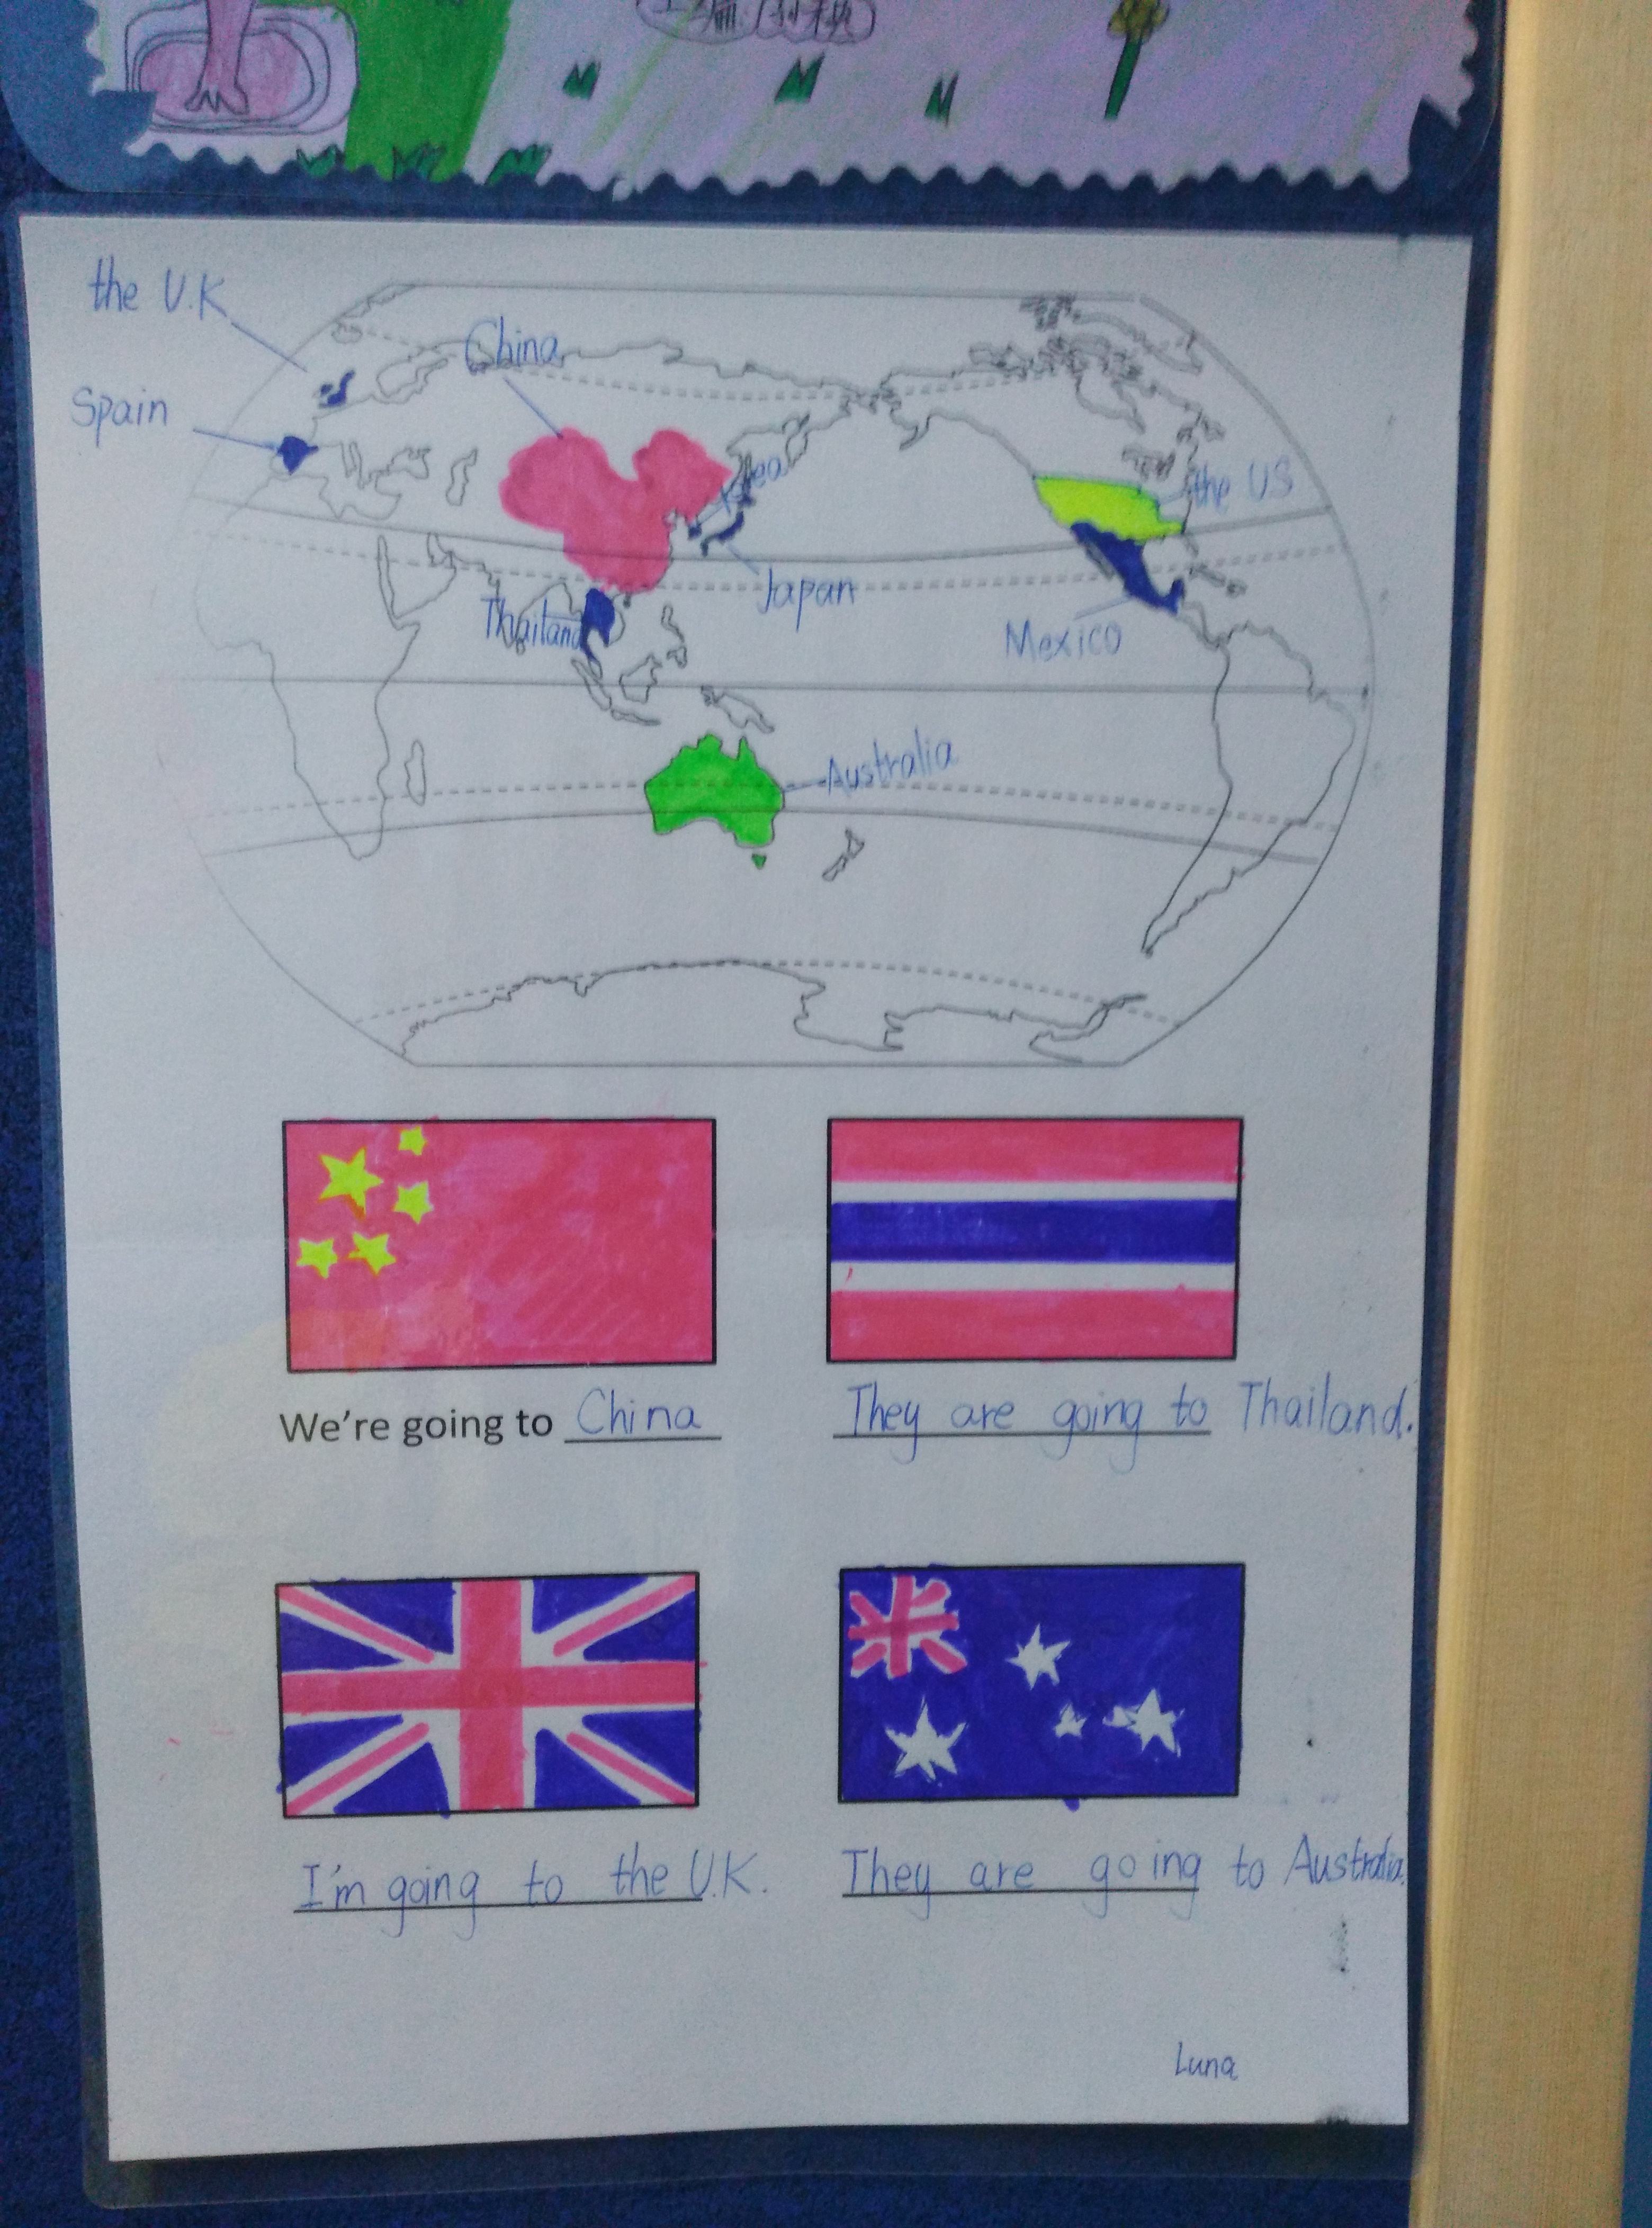 the U.K
China
Spain
the US
Japan
Thailand
Mexico
Australia
We're going to China
They are going to Thailand.
I'm going to the U.K.
They are going to Australia.
Luna